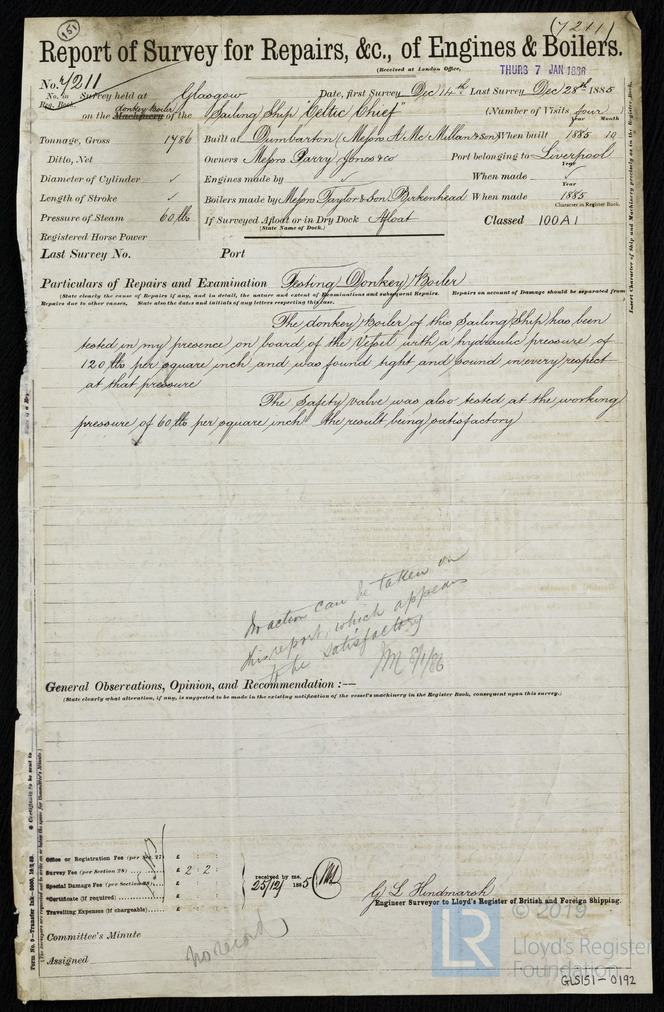 (151)
(7211)
Report of Survey for Repairs, &c., of Engines & Boilers.
(Received at London Office,
THURS 7 JAN 1886
No. 7211
No. in Reg. Book.
Survey held at Glasgow Date, first Survey Dec 14th Last Survey Dec 28th 1885
on the donkey boiler Machinery of the Sailing Ship "Celtic Chief" (Number of Visits four
Year Month
Tonnage, Gross 1786 Built at Dumbarton (Messrs A. McMillan & Son) When built 1885 10
Ditto, Net Owners Messrs Parry Jones & Co Port belonging to Liverpool
Year
Diameter of Cylinder ✓ Engines made by ✓ When made ✓
Year
Length of Stroke ✓ Boilers made by Messrs Taylor & Son, Birkenhead When made 1885
Character in Register Book.
Pressure of Steam 60 lbs If Surveyed Afloat or in Dry Dock Afloat Classed 100A1
(State Name of Dock.)
Registered Horse Power
Last Survey No. Port
Particulars of Repairs and Examination Testing Donkey Boiler
(State clearly the cause of Repairs if any, and in detail, the nature and extent of Examinations and subsequent Repairs. Repairs on account of Damage should be separated from
Repairs due to other causes, State also the dates and initials of any letters respecting this case.
The donkey Boiler of this Sailing Ship has been
tested in my presence on board of the Vessel with a hydraulic pressure of
120 lbs per square inch and was found tight and sound in every respect
at that pressure
The Safety valve was also tested at the working
pressure of 60 lbs per square inch the result being satisfactory
No action can be taken on
this report, which appears
to be satisfactory
JM 8/1/86
General Observations, Opinion, and Recommendation :—
(State clearly what alteration, if any, is suggested to be made in the existing notification of the vessel's machinery in the Register Book, consequent upon this survey.)
Office or Registration Fee (per Sec. 27) £ : :
Survey Fee (per Section 28) £ 2 : 2 :
Special Damage Fee (per Section 28) £ : :
*Certificate (if required) £ : :
Travelling Expenses (if chargeable) £ : :
received by me,
25/12/ 1885
G L Hindmarsh
Engineer Surveyor to Lloyd's Register of British and Foreign Shipping.
Committee's Minute
Assigned
No record
Insert Character of Ship and Machinery precisely as in the Register Book.
Form No. 9—Transfer Ink.
* Certificate to be sent to
LR
© 2019
Lloyd's Register
Foundation
GLS151-0192